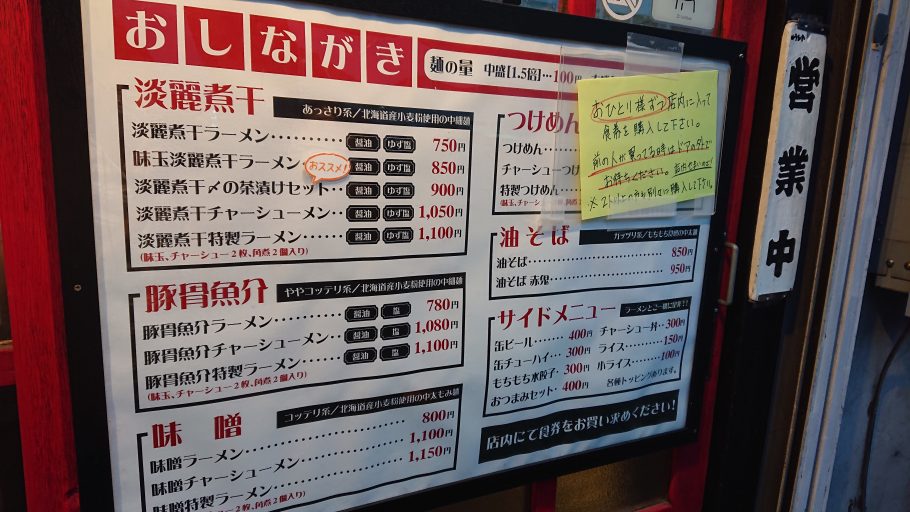 おしながき
麺の量 中盛[1.5倍]…100円
淡麗煮干
あっさり系/北海道産小麦粉使用の中細麺
淡麗煮干ラーメン 醤油 ゆず塩 750円
味玉淡麗煮干ラーメン おススメ! 醤油 ゆず塩 850円
淡麗煮干〆の茶漬けセット 醤油 ゆず塩 900円
淡麗煮干チャーシューメン 醤油 ゆず塩 1,050円
淡麗煮干特製ラーメン 醤油 ゆず塩 1,100円
(味玉、チャーシュー2枚、角煮2個入り)
豚骨魚介
ややコッテリ系/北海道産小麦粉使用の中細麺
豚骨魚介ラーメン 醤油 塩 780円
豚骨魚介チャーシューメン 醤油 塩 1,080円
豚骨魚介特製ラーメン 醤油 塩 1,100円
(味玉、チャーシュー2枚、角煮2個入り)
味噌
コッテリ系/北海道産小麦粉使用の中太もみ麺
味噌ラーメン 800円
味噌チャーシューメン 1,100円
味噌特製ラーメン 1,150円
(味玉、チャーシュー2枚、角煮2個入り)
つけめん
つけめん
チャーシューつけ
特製つけめん
(味玉、チャー
おひとり様ずつ店内に入って
食券を購入して下さい。
前の人が買ってる時はドアの外で
お待ちください。
購入して下さい。
油そば
ガッツリ系/もちもち食感の中太麺
油そば 850円
油そば 赤鬼 950円
サイドメニュー
ラーメンとご一緒に是非!!
缶ビール 400円 チャーシュー丼 300円
缶チューハイ 300円 ライス 150円
もちもち水餃子 300円 小ライス 100円
おつまみセット 400円 各種トッピングあります。
店内にて食券をお買い求めください!
営業中